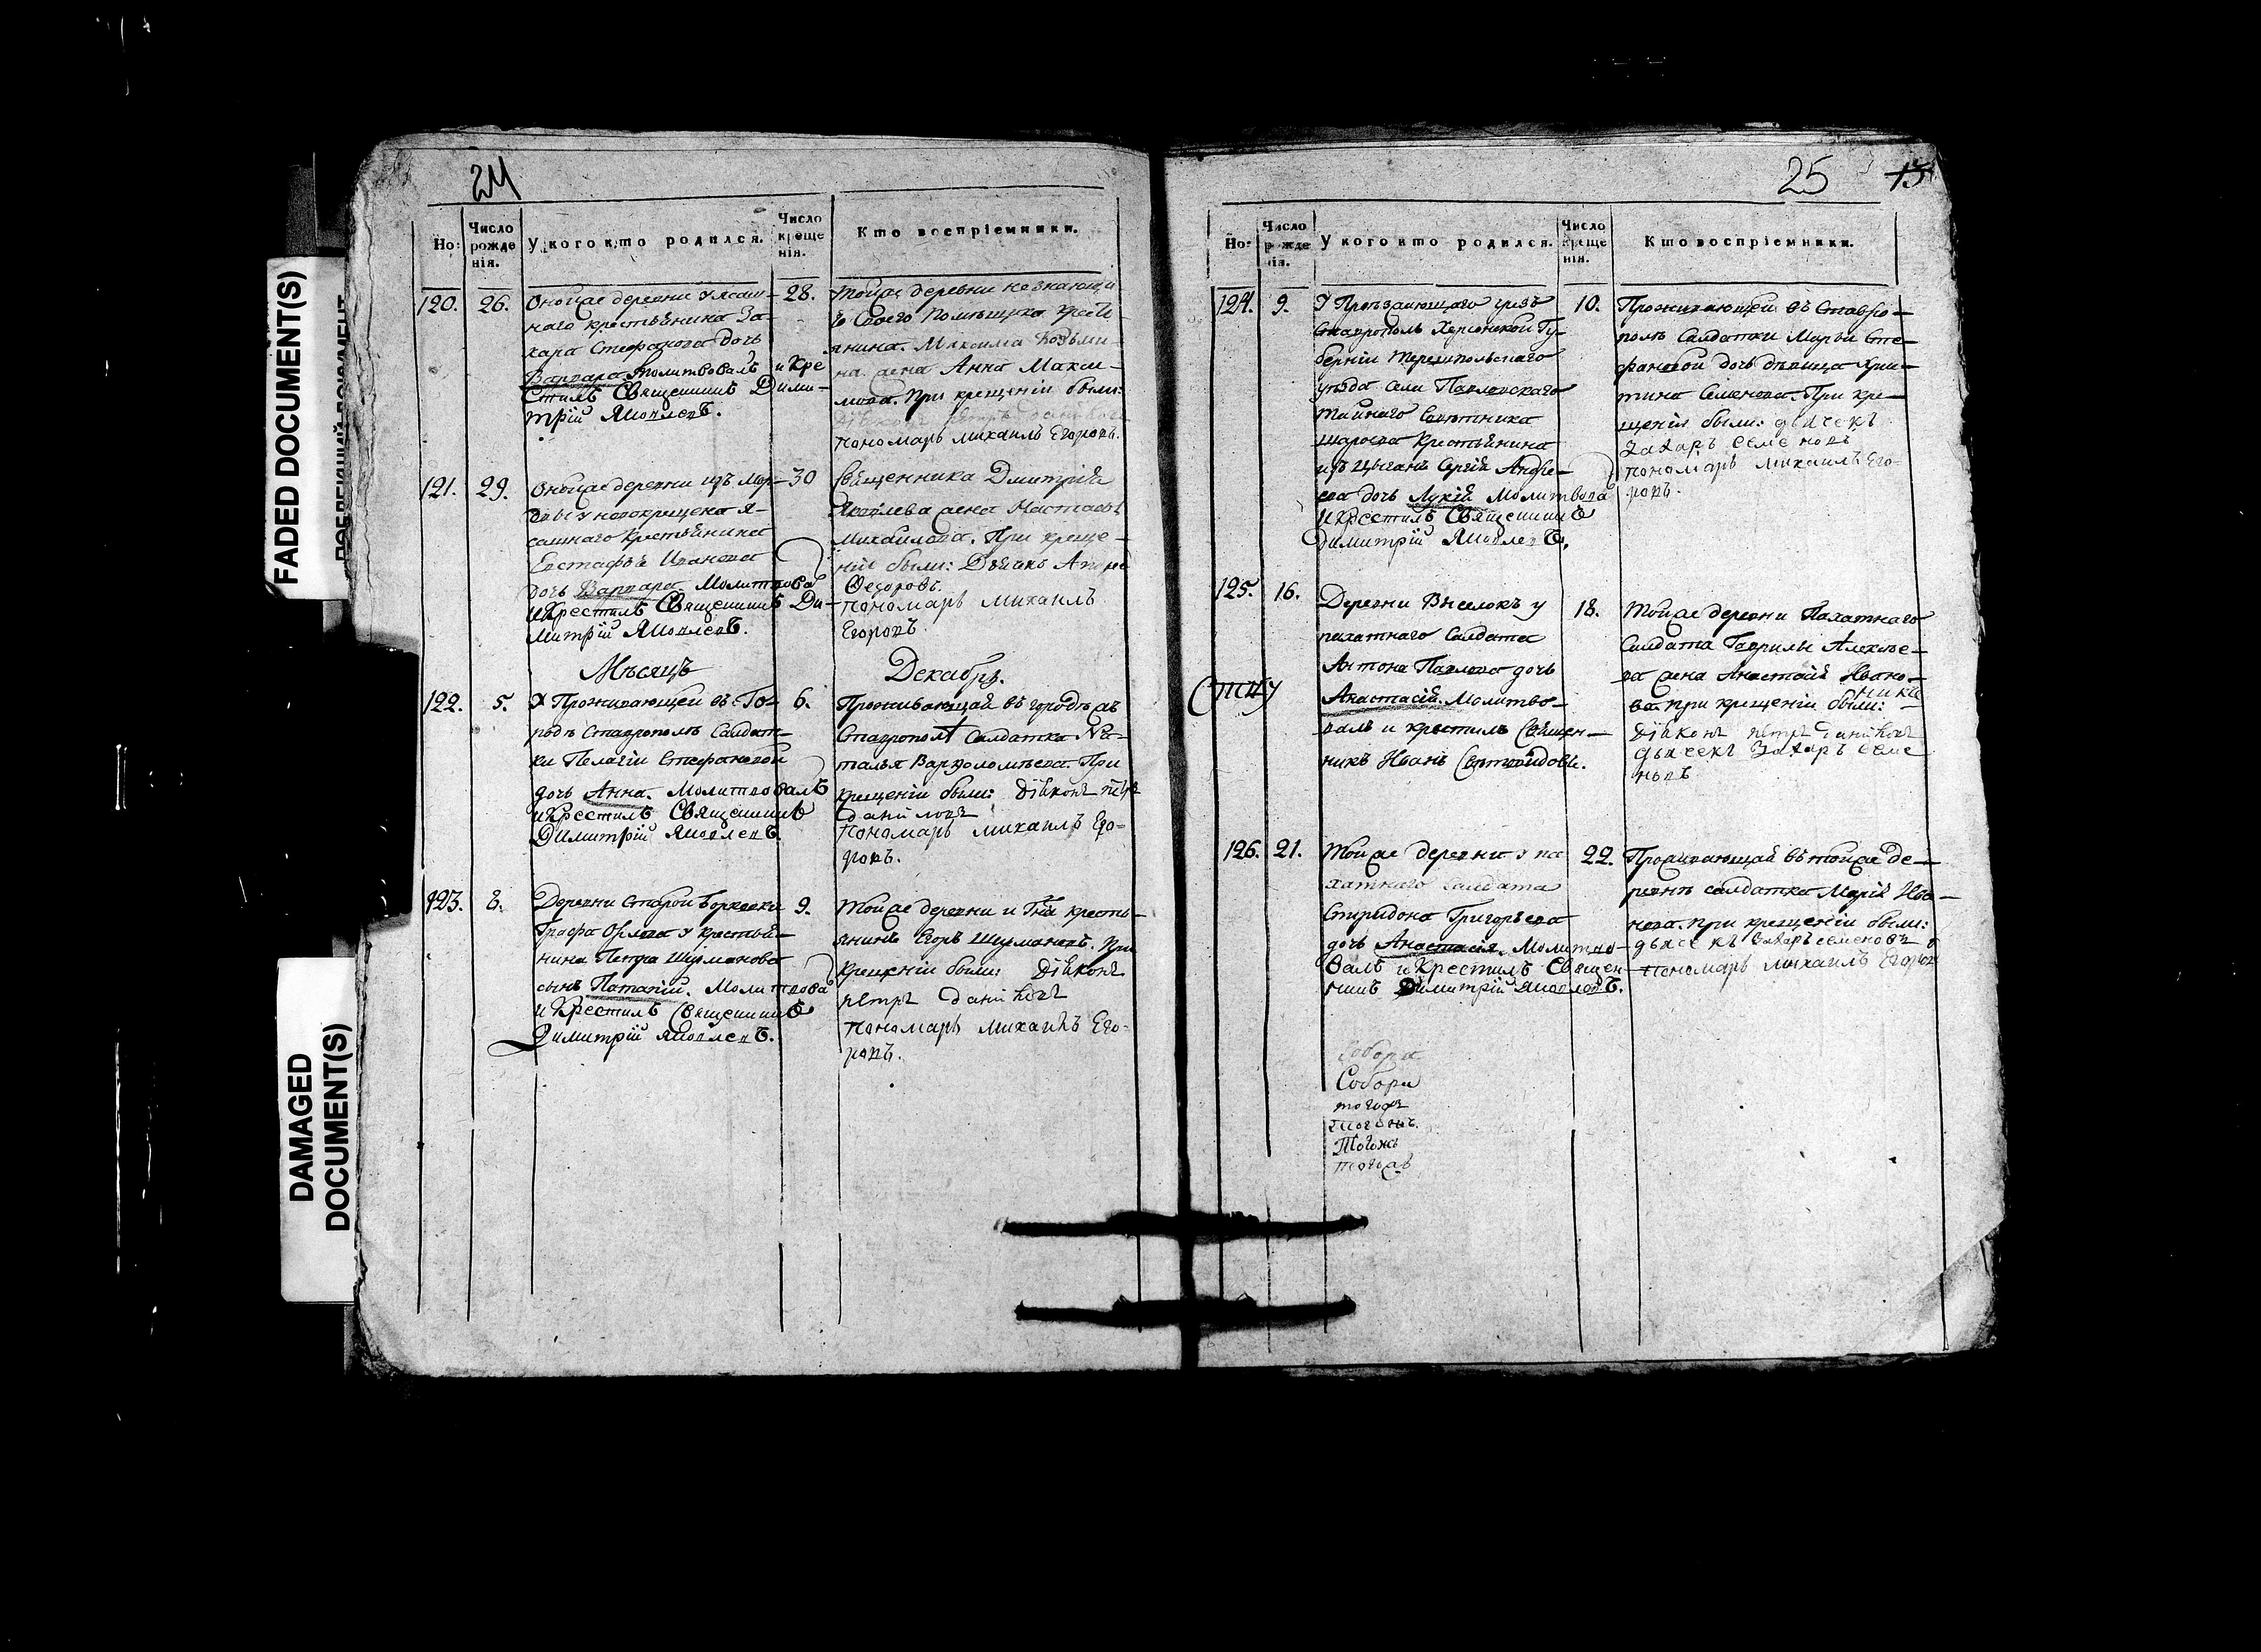 24
Но:
Число рожде нія.
У кого кто родился.
Число креще нія.
Кто воспріемники.
120.
26.
Оной же деревни у ясаш-
наго крестьянина За-
хара Стефанова дочь
Варвара молитвовалъ и Кре
стилъ Священникъ Дими-
трій Яковлевъ.
28.
Тойже деревни
своего помѣщика кресть
янина Максима Козьми-
на жена Анна Макси-
мова. При крещеніи были:
пономарь михаилъ Егоровъ.
121.
29.
Оной же деревни изъ Мор-
двы у новокрещена я-
сашнаго Крестьянина
Евстафья Иванова
дочь Варвара Молитвова
и Крестилъ Священникъ Ди-
митрій Яковлевъ.
30
Священника Дмитрія
Яковлева жена Настасья
Михайлова. При креще-
ніи были: Дьячекъ
Федоровъ.
пономарь михаилъ
Егоровъ.
Мѣсяцъ
Декабрь.
122.
5.
У Проживающей въ Го-
родѣ Ставрополѣ Салдат-
ки Пелагіи Стефановой
дочь Анна. Молитвовалъ
и Крестилъ Священникъ
Димитрій Яковлевъ.
6.
Проживающая въ городѣ
Ставрополѣ Салдатка На-
талья Варфоломѣева. При
крещеніи были: діяконъ петръ
даниловъ
пономарь михаилъ Его-
ровъ.
123.
8.
Деревни Старой Борковки
Графа Орлова у крестья-
нина Петра Шурманова
сынъ Потапій. Молитвова
и Крестилъ Священникъ
Димитрій Яковлевъ.
9.
Тойже деревни и Гна кресть-
янинъ Егоръ Шурмановъ. При
крещеніи были: діяконъ
петръ даниловъ
пономарь михаилъ Его-
ровъ.
25
15
Но:
Число рожде нія.
У кого кто родился.
Число креще нія.
Кто воспріемники.
124.
9.
У Проѣзжающаго чрезъ
Ставрополь Херсонской Гу-
берніи
уѣзда села Павловскаго
тайнаго Совѣтника
Крестьянина
изъ Цыганъ Сергѣя Андре-
ева дочь Лукія Молитвова
и Крестилъ Священникъ
Димитрій Яковлевъ.
10.
Проживающей въ Ставро-
полѣ Салдатки Марьи Сте-
фановой дочь дѣвица Хри-
тина Семенова. При кре-
щеніи были: дьячекъ
Захаръ Семеновъ
пономарь михаилъ Его-
ровъ.
125.
16.
Деревни Выселокъ у
пахатнаго Салдата
Антона Павлова дочь
Анастасія. Молитво-
валъ и крестилъ Священ-
никъ Иванъ
18.
Тойже деревни Пахатнаго
Салдата Гаврилы Алексѣе-
ва жена Анастасія Ивано-
ва. При крещеніи были:
діяконъ петръ даниловъ
дьячекъ Захаръ Семе
новъ
126.
21.
Тойже деревни у па
хатнаго салдата
Спиридона Григорьева
дочь Анастасія. Молитво-
валъ и Крестилъ Священ-
никъ Димитрій Яковлевъ.
22.
Проживающая въ тойже де-
ревнѣ салдатка Марія Ива-
нова. при крещеніи были:
дьячекъ Захаръ семеновъ
пономарь михаилъ Егоров
Собори
Собори
тогожъ
FADED DOCUMENT(S)
DAMAGED
DOCUMENT(S)